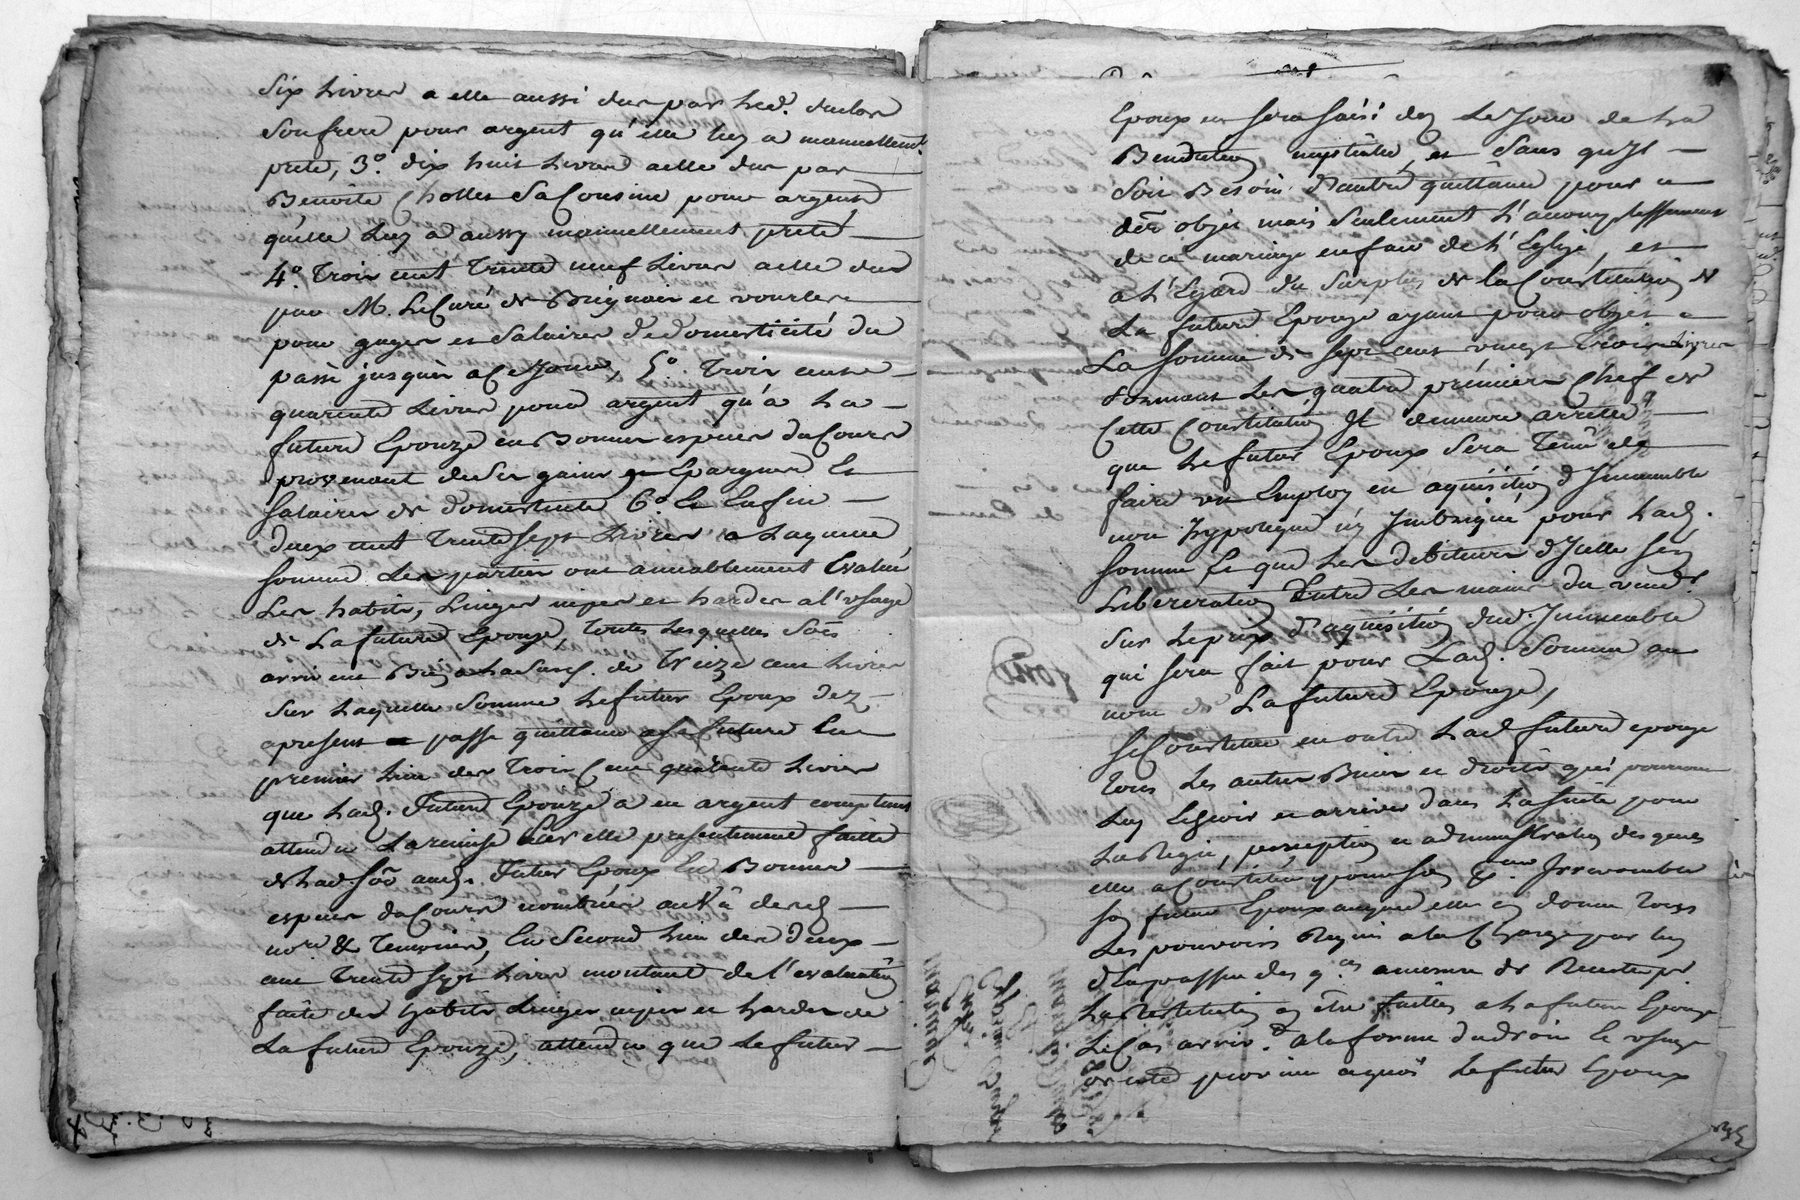 six livres a elle aussi dus par led. duclos
son frere pour argent qu'elle luy a manuellemt.
preté, 3.o dix huit livres a elle dus par
Benoite Chollet sa Cousine pour argent
qu'elle luy a aussy manuellement preté
4.o Trois cent trente neuf livres a elle dus
par M. le Curé de Brignais et vourles
pour gages et salaires de domesticité du
passé jusques a ce jour, 5.o Trois cent
quarente livres pour argent qu'a la
future Epouze en Bonnes especes du Cours
provenant de ses gains et Epargnes Et
salaires de domesticité 6.o Et Enfin
deux cent trente sept livres a laquelle
somme les parties ont amiablement Evalué
les habits, Linges nipes et hardes a l'usage
de La future Epouze, toutes lesquelles sões
arrivent a lad. de treize cent livres
sur laquelle somme le futur Epoux dez
apresent passe quittance a sa future En
premier lieu des trois Cent quarente livres
que lad. future Epouze a en argent comptant
attendu La remise par elle presentement faitte
de lad. sõe aud. futur Epoux En Bonnes
especes du Cours nombrées a vüe desd.
nores & temoins, En second lieu des deux
cent trente sept livres montant de l'evaluation
faite des habits Linges nipes et hardes de
La future Epouze, attendu que le futur
Epoux en sera saisi dez le Jour de la
Benediction nuptialle, et sans qu'il
soit Besoin d'autre quittance pour ce
der objet mais seulement l'accomplissement
de ce mariage en face de l'Eglize, et
a l'Egard du surplus de la Constitution de
La future Epouze ayant pour objet
La somme de sept cent vingt trois livres
formant les quatre premiers Chef de
Cette Constitution Il demeure arretté
que le futur Epoux sera tenu de
faire un Employ en aquisition d'Immeuble
non hypotequé ny Imbriqué pour lad.
somme ce que les debiteurs d'Icelle
Liberation Entre les mains du vendr.
sur le prix d'aquisition dud. Immeuble
qui sera fait pour Lad. somme au
nom de La future Epouze,
se Constitue en outre lad future epouze
tous les autres Biens et droits qui pourront
luy Echeoir et arriver dans la suitte pour
la Regie, perception et administration desquels
elle a Constitué pour son pr. Irrevocable
son futur Epoux auquel elle en donne tous
Les pouvoirs Requis a la Charge par luy
d'En passer des q.ces a mesure de Recette pr
la restitution en être faitte a la future Epouze
le Cas arriv.t a la forme du droit Et usage
de cette province a quoi le futur Epoux